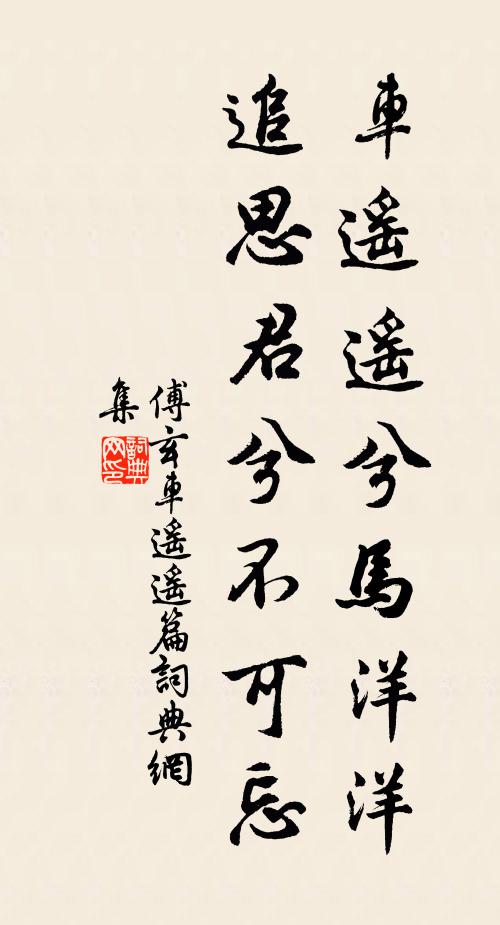 車遥遥兮馬洋洋
追思君兮不可忘
傅玄車遥遥篇詞典網
集
詞典
网印